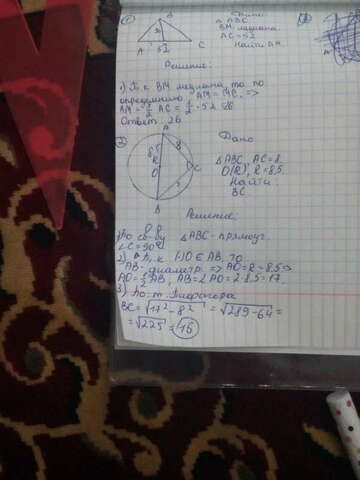 Дано:
△ ABC.
BM медиана.
AC = 52
Найти AM.
Решение:
1) Т.к BM медиана, то по
определению AM = MC. =>
AM = 1/2 AC = 1/2 · 52 = 26
Ответ: 26
Дано
△ABC, AC = 8.
O(R), R = 8,5.
Найти:
BC
Решение
△ABC - прямоуг.
∠C = 90°
O ∈ AB, то
AB - диаметр. => AO = R = 8,5 =>
AO = 1/2 AB, AB = 2 AO = 2 · 8,5 = 17.
3) По т. Пифагора
BC = √17² - 8² = √289 - 64 =
= √225 = 15